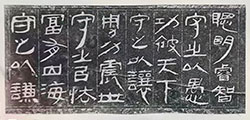 聰明睿智
守之以愚
功被天下
守之以讓
勇力震世
守之以怯
富有四海
守之以謙